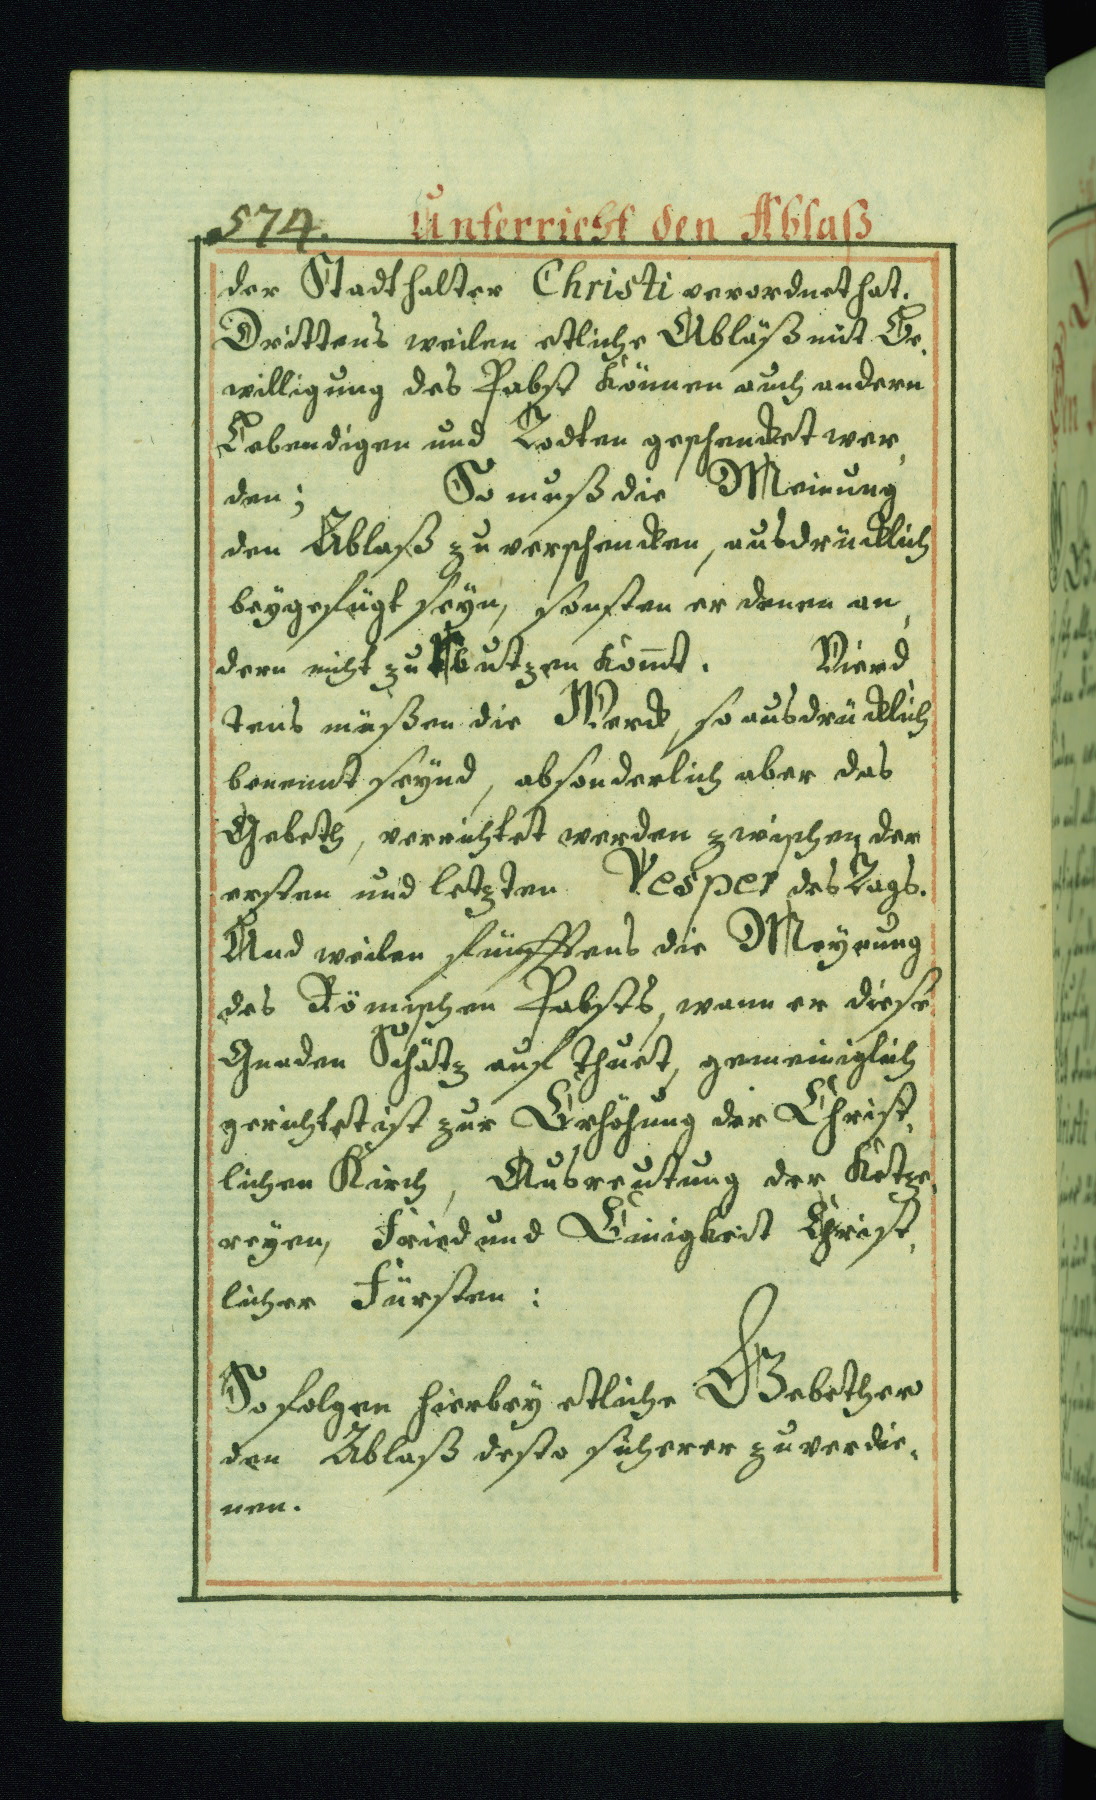 574. Unterricht den Ablaß
der Stadthalter Christi verordnet hat.
Drittens weilen etliche Abläß mit Be,
willigung des Pabst können auch andern
Lebendigen und Todten geschencket wer,
den; So muß die Meinung
den Ablaß zu verschencken, ausdrücklich
beygefügt seyn, sonsten er denen an,
dern nicht zu butzen kom̄t. Vierd
tens müßen die Werck, so ausdrücklich
benennt seynd, absonderlich aber das
Gebeth, verrichtet werden zwischen der
ersten und letzten Vesper des Tags.
Und weilen fünfftens die Meynung
des Römischen Pabsts, wann er diese
Gnaden Schätz auf thuet, gemeiniglich
gerichtet ist zur Erhöhung der Christ,
lichen Kirch, Ausreutung der Ketze,
reyen, Fried und Einigkeit Christ,
licher Fürsten:
So folgen hierbey etliche Gebether
den Ablaß desto sicherer zu verdie,
nen.